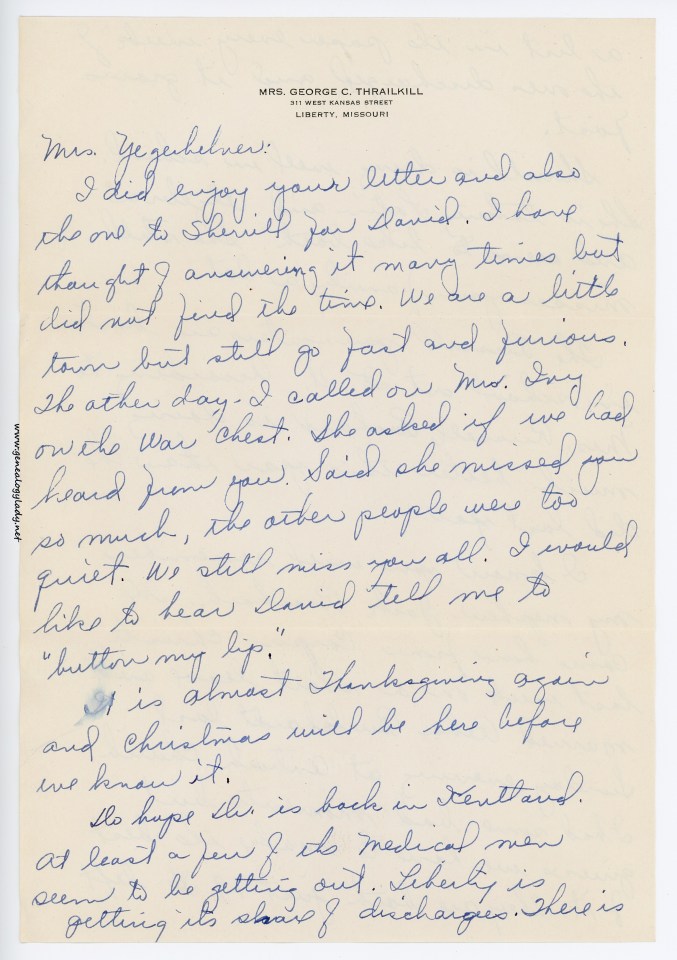 MRS. GEORGE C. THRAILKILL
311 WEST KANSAS STREET
LIBERTY, MISSOURI
Mrs. Yegerlehner:
I did enjoy your letter and also
the one to Sherrill for David. I have
thought of answering it many times but
did not find the time. We are a little
town but still go fast and furious.
The other day I called on Mrs. Ivy
on the War Chest. She asked if we had
heard from you. Said she missed you
so much, the other people were too
quiet. We still miss you all. I would
like to hear David tell me to
"button my lip."
It is almost Thanksgiving again
and Christmas will be here before
we know it.
Do hope Dr. is back in Kentland.
At least a few of the medical men
seem to be getting out. Liberty is
getting its share of discharges. There is
www.genealogylady.net